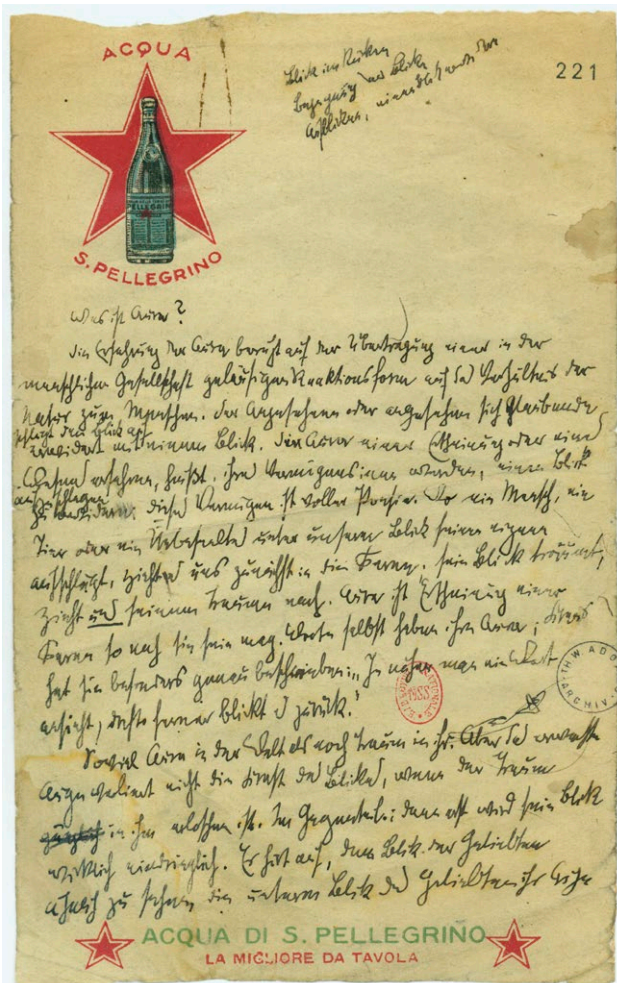 ACQUA
S. PELLEGRINO
S. PELLEGRINO
221
Blick im Rücken
Begegnung der Blicke
Aufblicken,
Was ist Aura?
Die Erfahrung der Aura beruht auf der Übertragung einer in der
menschlichen Gesellschaft geläufigen Reaktionsform auf das Verhältnis der
Natur zum Menschen. Der Angesehene oder angesehen sich Glaubende
schlägt den Blick auf
erwidert mit einem Blick. Die Aura einer Erscheinung oder eines
Wesens erfahren, heißt, ihres Vermögens innewerden, einen Blick
aufzuschlagen
zu erwidern; dieses Vermögen ist voller Poesie. Wo ein Mensch, ein
Tier oder ein Unbeseeltes unter unserm Blick seinen eignen
aufschlägt, zieht es uns zunächst in die Ferne; sein Blick träumt,
zieht uns seinem Traume nach. Aura ist Erscheinung einer
Ferne so nah sie sein mag. Worte selbst haben ihre Aura; Kraus
hat sie besonders genau beschrieben: „Je näher man ein Wort
ansieht, desto ferner blickt es zurück."
BIBLIOTHÈQUE NATIONALE
TH. W. ADORNO ARCHIV
Soviel Aura in der Welt als noch Traum in ihr. Aber das erwachte
Auge verlernt nicht die Kunst des Blicks, wenn der Traum
gänzlich in ihm erloschen ist. Im Gegenteil: dann erst wird sein Blick
wirklich eindringlich. Er hört auf, dem Blick der Geliebten
ähnlich zu sehen die unterm Blick des Geliebten ihr Auge
ACQUA DI S. PELLEGRINO
LA MIGLIORE DA TAVOLA